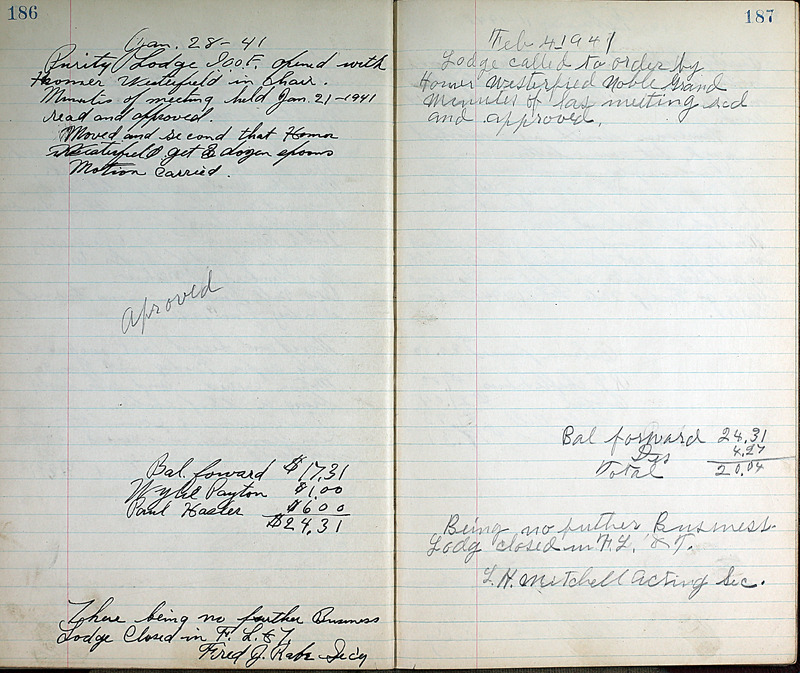 186
Jan. 28-41
Purity Lodge I.O.O.F. opened with
Homer Westefield in Chair.
Minutes of meeting held Jan. 21-1941
read and approved.
Moved and second that Homer
Westefield get 8 dozen spoons
Motion Carried.
aproved
Bal. foward $17.31
Wylie Payton $1.00
Paul Hasler $6.00
$24.31
There being no further Business
Lodge Closed in F. L. & T.
Fred J. Rabe Secy
187
Feb 4 1941
Lodge called to order by
Homer Westerfied Noble Grand
Menutes of las meeting red
and approved.
Bal forward 24.31
4.27
Total 20.04
Being no further Busness.
Lodg closed in F.L. & T.
L.H. Mitchell Acting Sec.